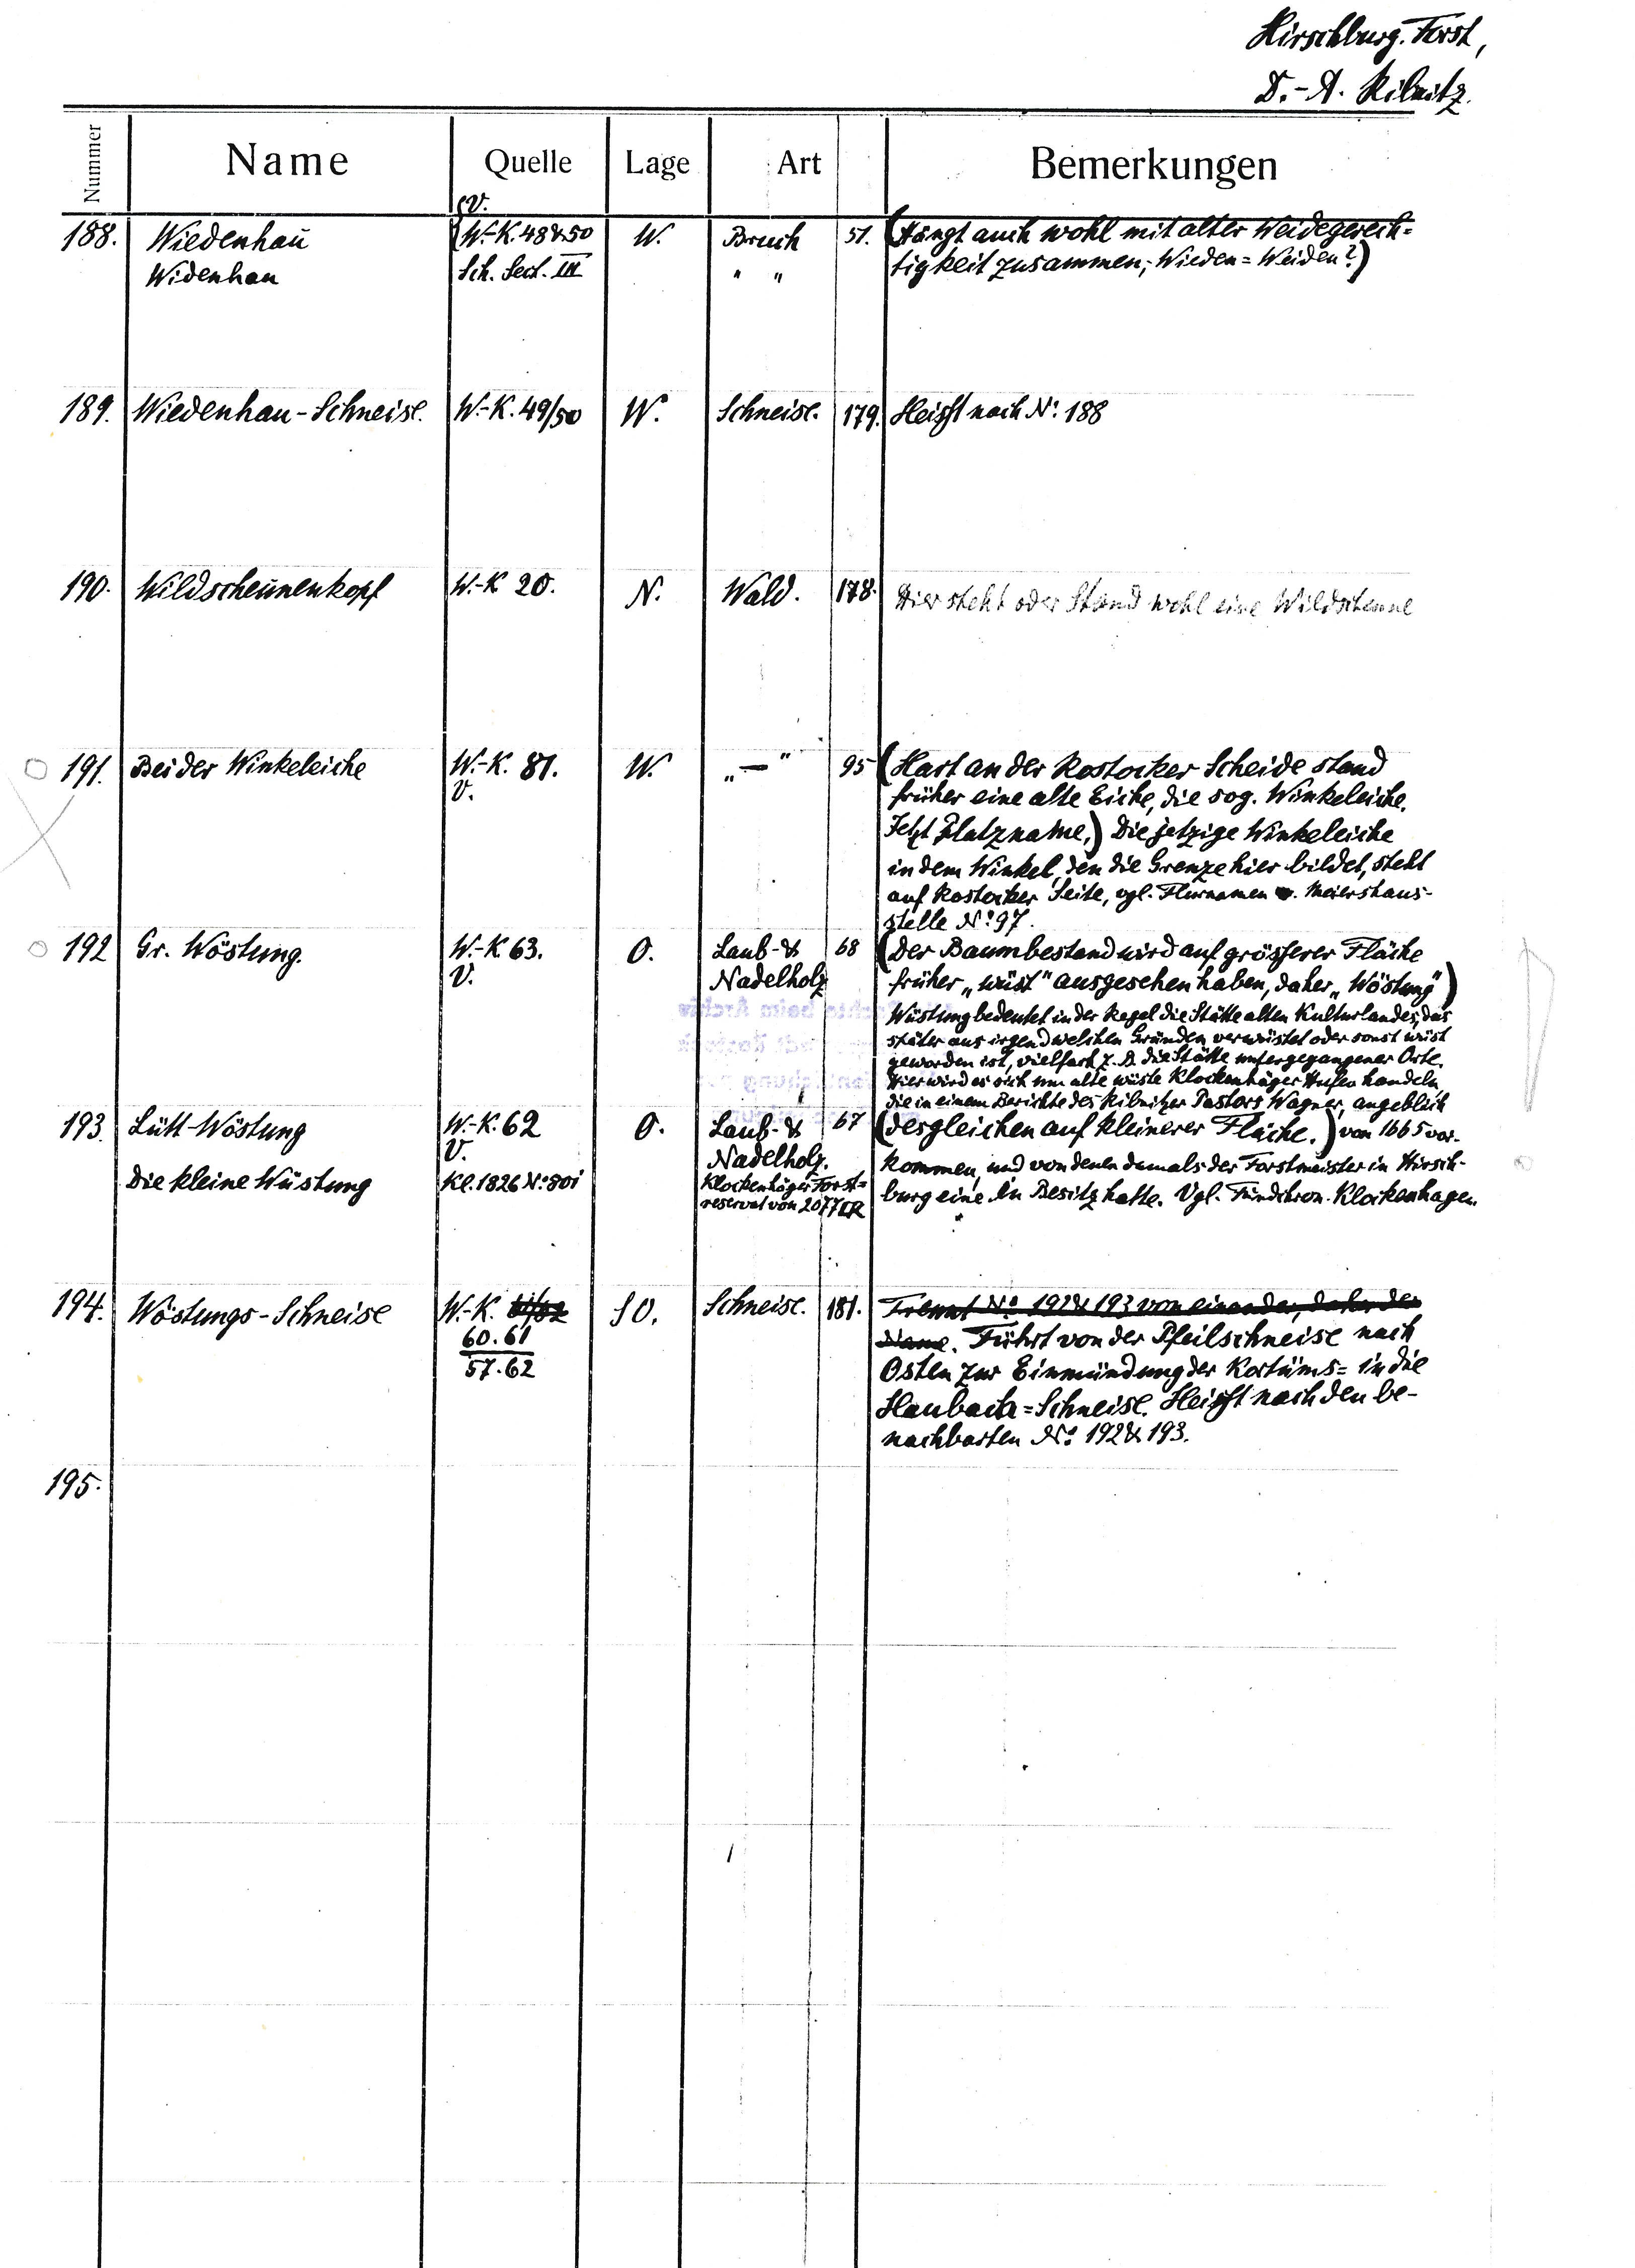 Hirschburg. Forst,
D.-A. Ribnitz.
Nummer Name Quelle Lage Art Bemerkungen
V.
188. Wiedenhaŭ W.-K. 48 & 50 W. Bruch 51. (Hängt auch wohl mit alter Weidegerech=
Widenhau Sch. Sect. III " " tigkeit zusammen; Wieden = Weiden?)
189. Wiedenhau-Schneise. W.-K. 49/50 W. Schneise. 179. Heisst nach No. 188
190. Wildscheŭnenkopf W.-K 20. N. Wald. 178. Hier steht oder stand wohl eine Wildscheune
191. Bei der Winkeleiche W.-K. 81. W. „ — " 95 (Hart an der Rostocker Scheide stand
V. früher eine alte Eiche, die sog. Winkeleiche.
Jetzt Platzname.) Die jetzige Winkeleiche
in dem Winkel, den die Grenze hier bildet, steht
auf Rostocker Seite, vgl. Flurnamen v. Meiershaus-
stelle No. 97.
192 Gr. Wöstung. W.-K 63. O. Laub- & 68 (Der Baumbestand wird auf grösserer Fläche
V. Nadelholz früher „wüst" ausgesehen haben, daher „Wöstung")
Wüstung bedeutet in der Regel die Stätte alten Kulturlandes, das
später aus irgend welchen Gründen verwüstet oder sonst wüst
geworden ist, vielfach z. B. die Stätte untergegangener Orte.
Hier wird es sich um alte wüste Klockenhäger Hufen handeln,
die in einem Berichte des Ribnitzer Pastors Wagner, angeblich
193. Lütt-Wöstung W.-K. 62 O. Laub- & 67 (desgleichen auf kleinerer Fläche.) von 1665 vor-
V. Nadelholz.
Die kleine Wüstung Kl. 1826 No. 801 Klockenhäger Forst= kommen, und von denen damals der Forstmeister in Hirsch-
reservat von 2077 □R burg eine in Besitz hatte. Vgl. Klockenhagen.
194. Wöstungs-Schneise W.-K. 61/62 SO. Schneise. 181. Trennt No. 192 & 193 von einander, daher der
60.61 Name. Führt von der Pfeilschneise nach
57.62 Osten zur Einmündung der Kostüms= in die
Haubach=Schneise. Heisst nach den be-
nachbarten No. 192 & 193.
195.